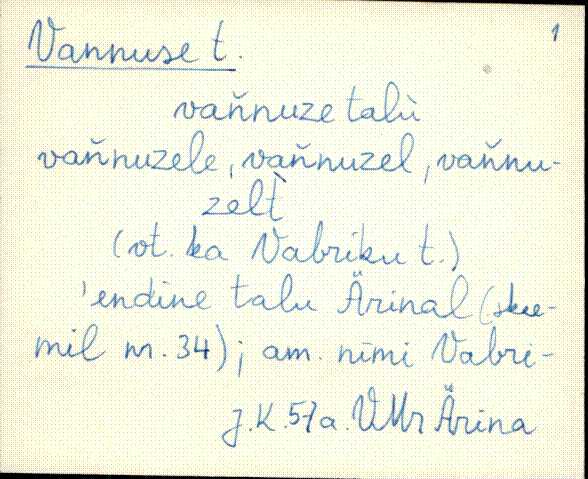 1
Vannuse t.
vaňnuze talù
vaňnuzele, vaňnuzel, vaňnu-
zelt̀
(vt. ka Vabriku t.)
'endine talu Ärinal (skee-
mil nr. 34); am. nimi Vabri-
J.K. 57a. VMr Ärina